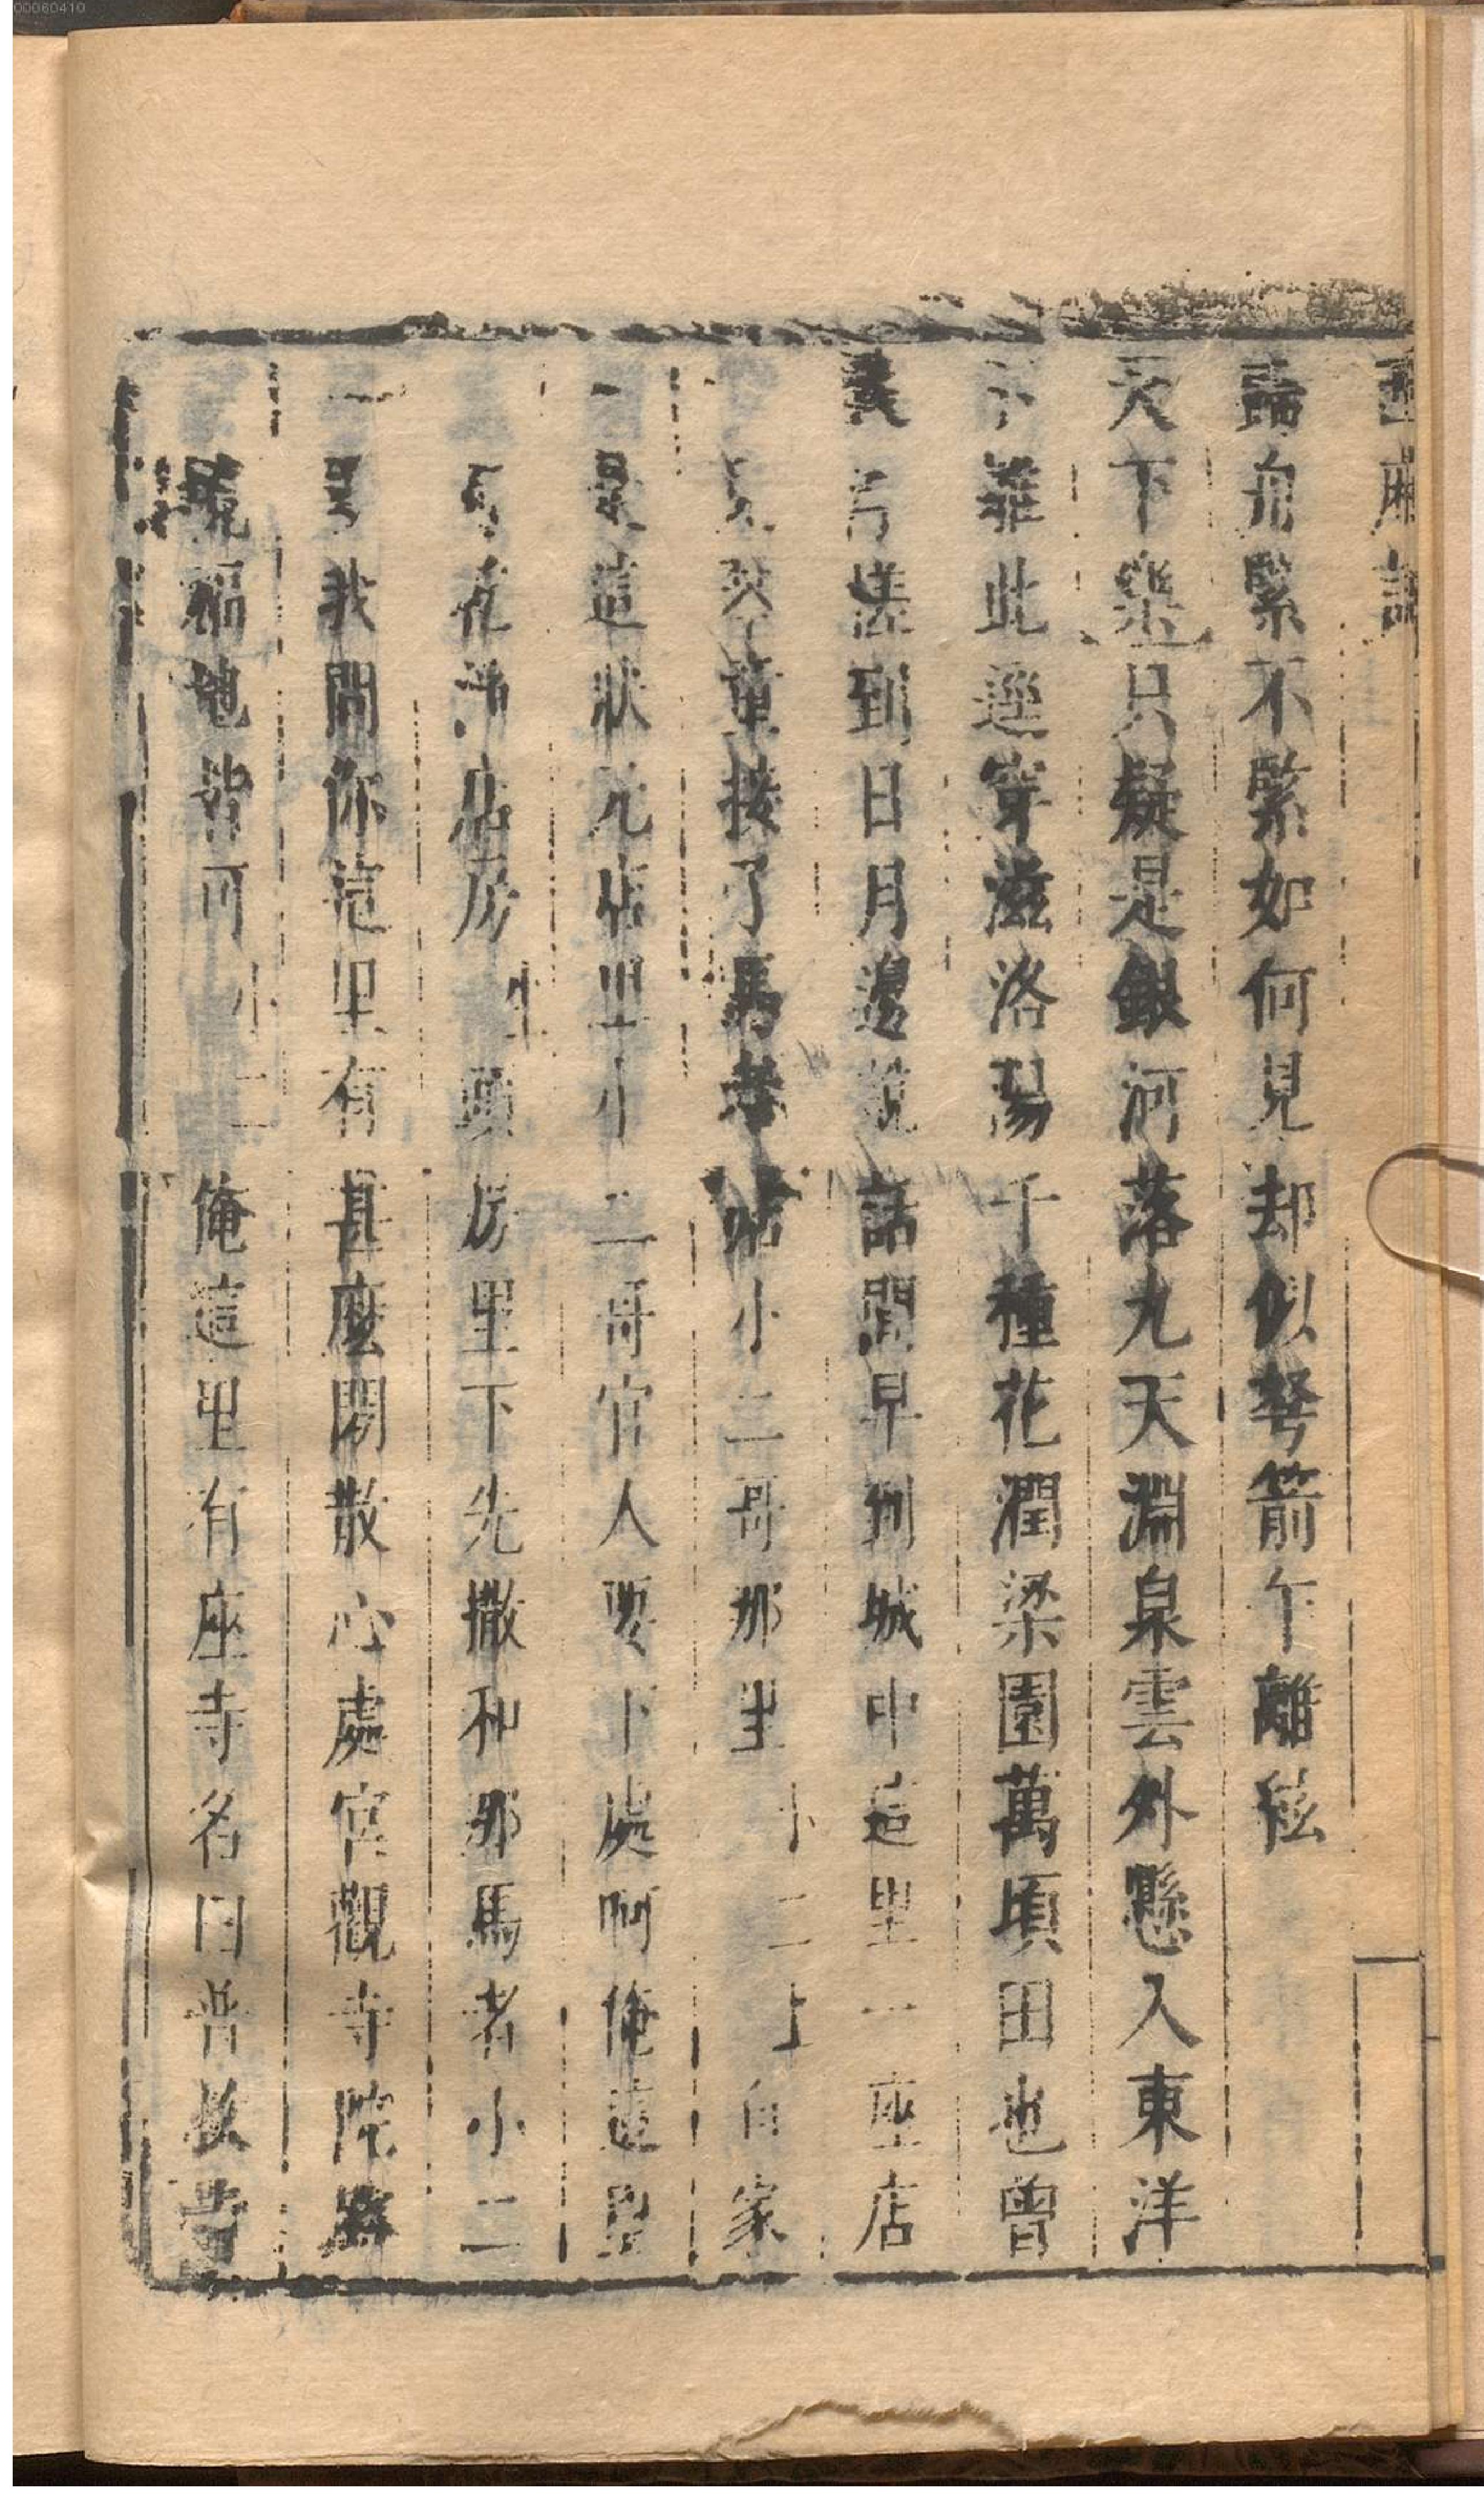 00060410
西廂記
舟緊不緊如何見却似弩箭乍離絃
天下樂只疑是銀河落九天淵泉雲外懸入東洋
不離此逕穿滋洛陽千種花潤梁園萬頃田也曾
到日月邊說話間早到城中這里一座店
琴童接了馬者店小二哥那里小二上自家
是這狀元店里小二哥官人要下處呵俺這里
有乾淨店房生頭房里下先撒和那馬者小二
我問你這里有甚麼閑散心處宮觀寺院
境福地皆可小二俺這里有座寺名曰普救寺